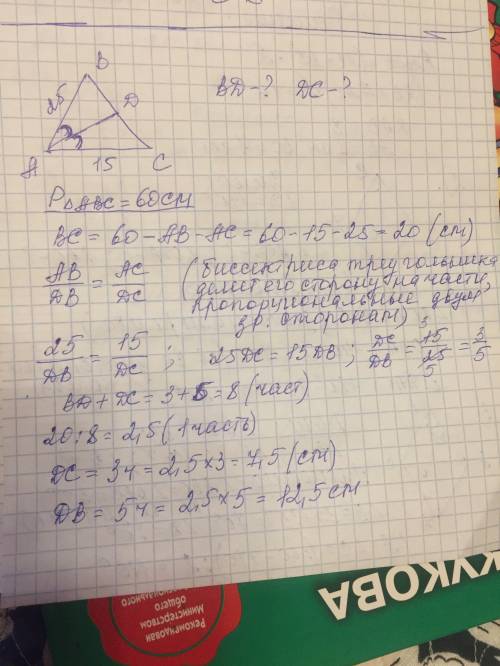 B
25
D
BD-? DC-?
A 15 C
P△ABC = 60см
BC = 60 - AB - AC = 60 - 15 - 25 = 20 (см)
AB/DB = AC/DC (биссектриса треугольника
делит его сторону на части,
пропорциональные двум
др. сторонам)
25/DB = 15/DC ; 25DC = 15DB ; DC/DB = 15/25 = 3/5
3
5
BD + DC = 3 + 5 = 8 (част)
20 : 8 = 2,5 (1 часть)
DC = 3ч = 2,5 × 3 = 7,5 (см)
DB = 5ч = 2,5 × 5 = 12,5 см
ЖУКОВА
Рекомендован
Министерством
общего